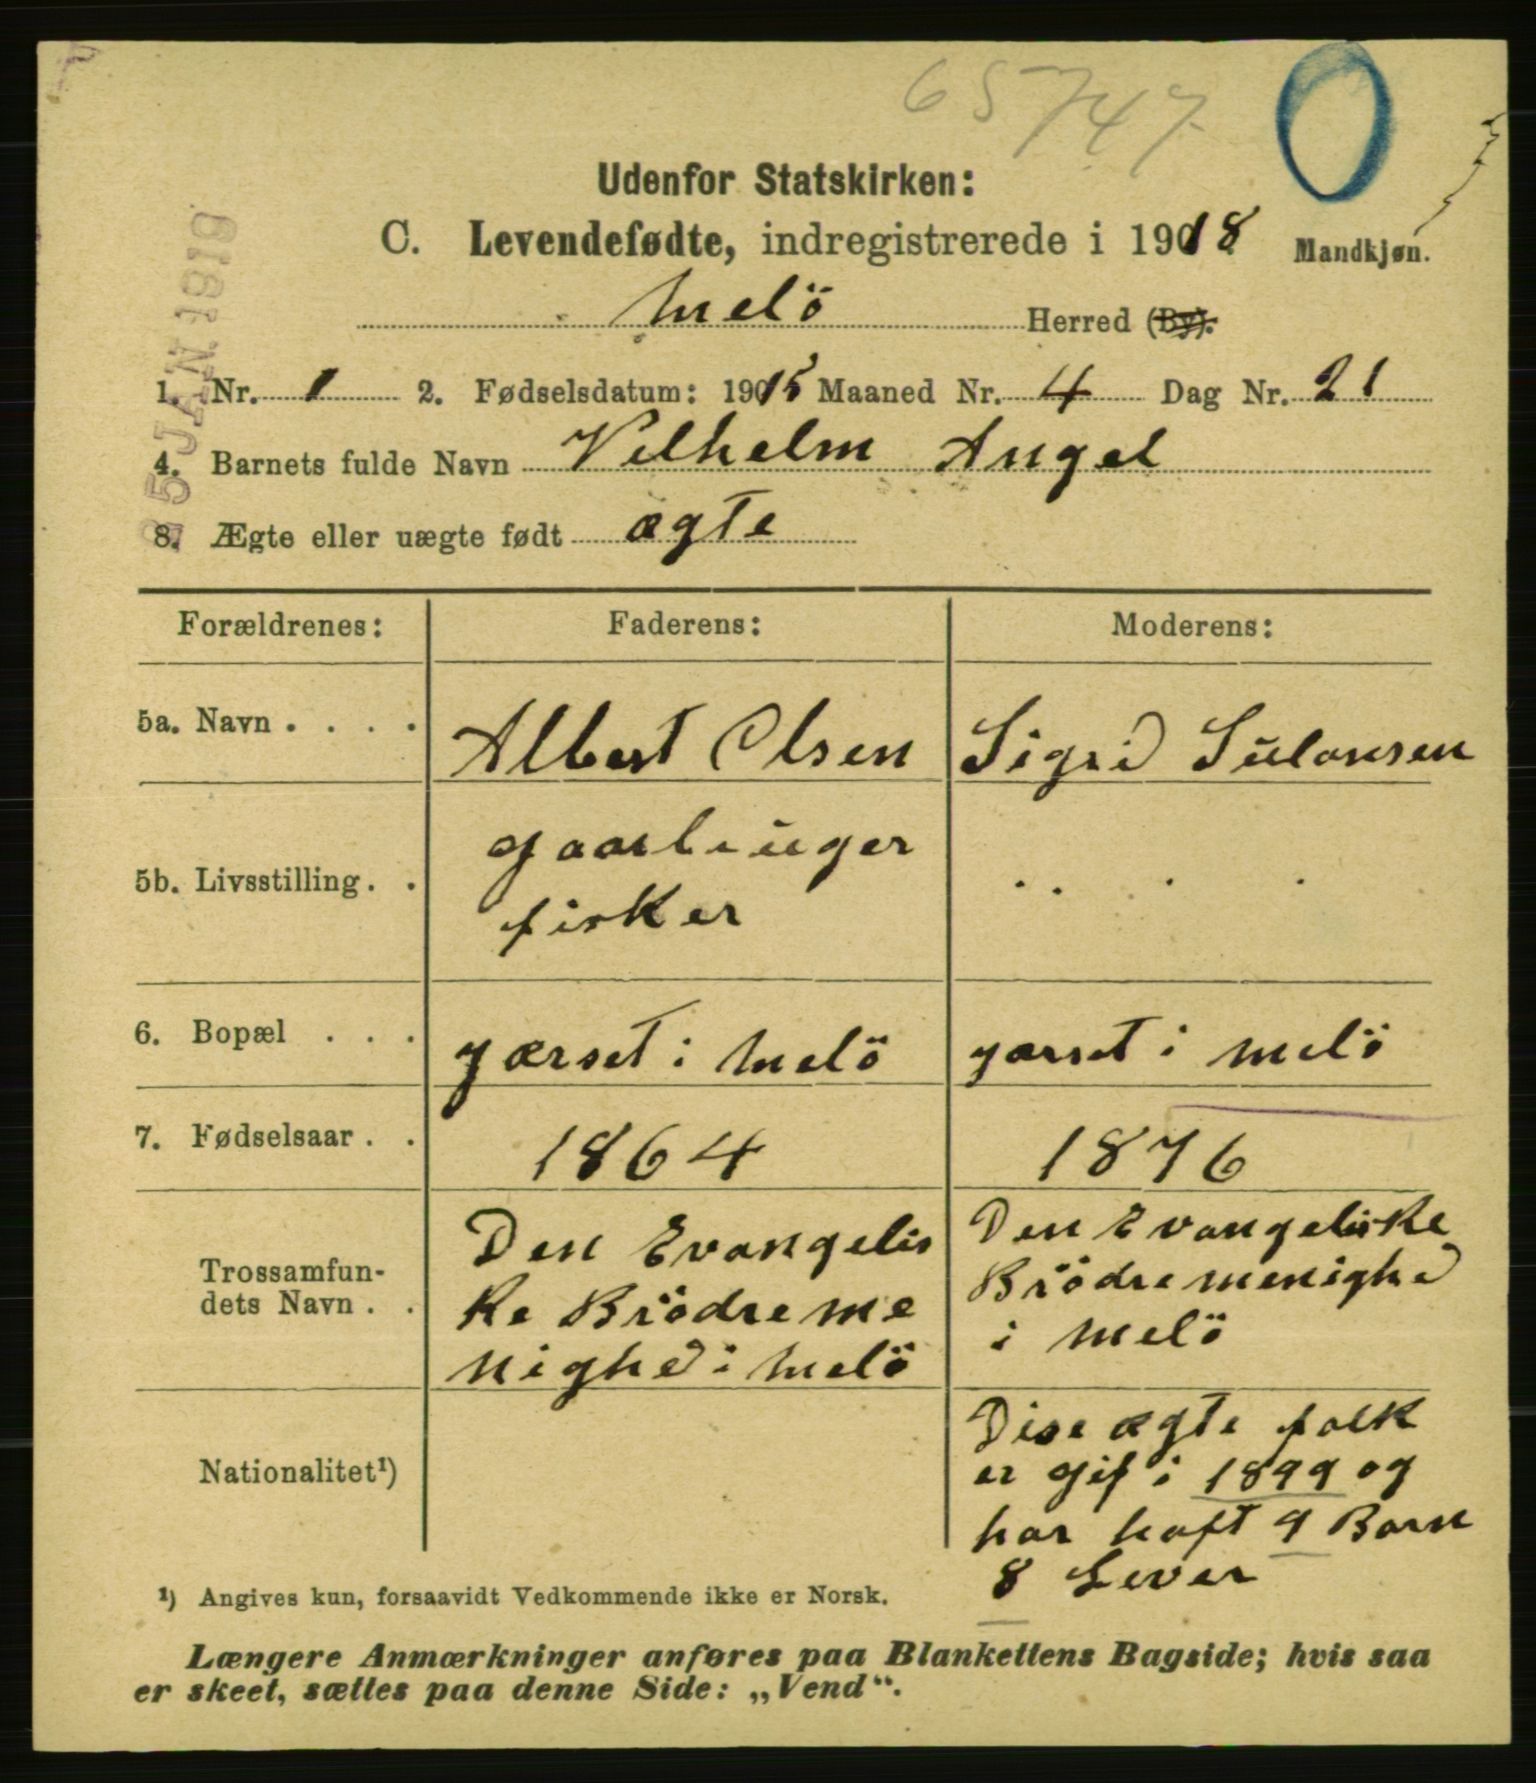 65747
0
Udenfor Statskirken:
C. Levendefødte, indregistrerede i 1918 Mandkjøn.
Melö Herred (By).
25 JAN. 1919
1. Nr. 1 2. Fødselsdatum: 1915 Maaned Nr. 4 Dag Nr. 21
4. Barnets fulde Navn Vilhelm Angel
8. Ægte eller uægte født ægte
Forældrenes: Faderens: Moderens:
5a. Navn . . . . Albert Olsen Sigrid Sülansen
5b. Livsstilling. . gaarbrüger
fisker
6. Bopæl . . . gærset i Melö gærset i Melö
7. Fødselsaar . . 1864 1876
Trossamfun-
dets Navn . .
Den Evangelis
ke Brödreme
nighed i Melö
Den Evangeliske
Brödremenighed
i Melö
Nationalitet¹)
Dise ægte folk
er gif i 1899 og
har haft 9 Barn
8 Lever
¹) Angives kun, forsaavidt Vedkommende ikke er Norsk.
Længere Anmærkninger anføres paa Blankettens Bagside; hvis saa
er skeet, sættes paa denne Side: „Vend“.